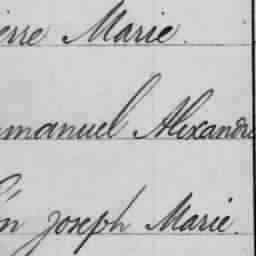 ierre Marie.
manuel Alexandre
n Joseph Marie.